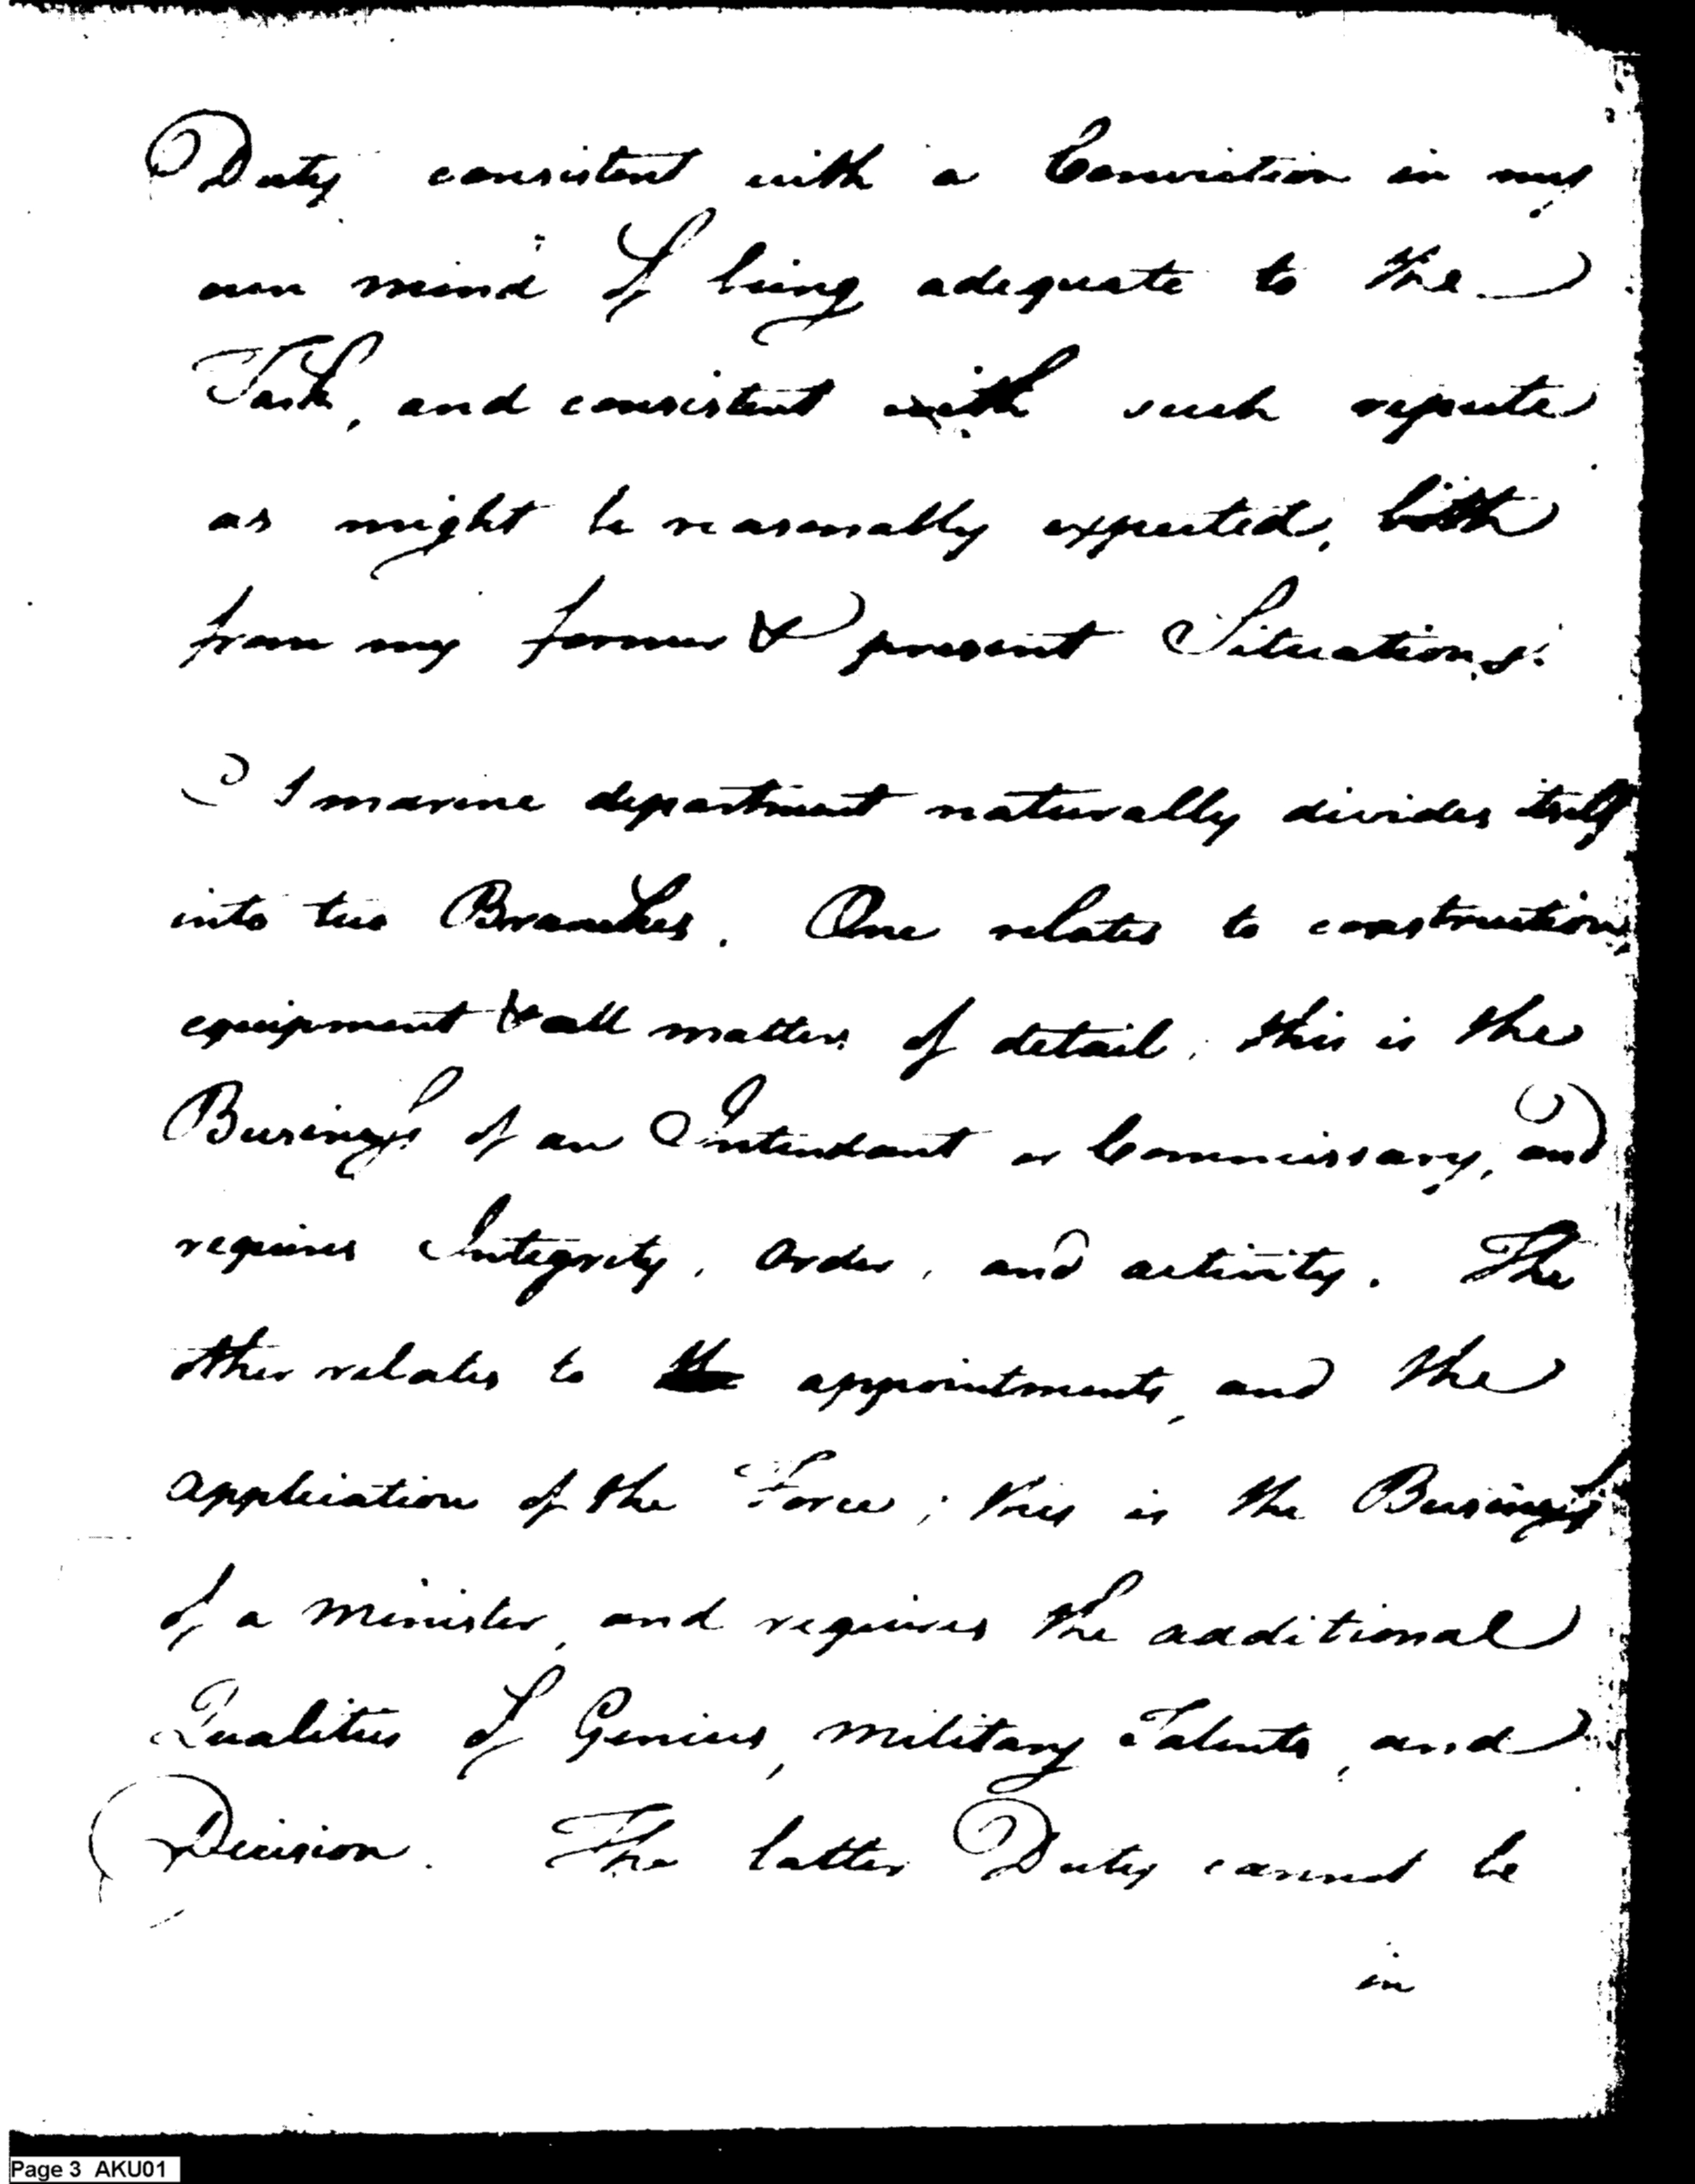 Duty consistent with a Conviction in my
own mind of being adequate to the
Task, and consistent with such repute
as might be reasonably expected, both
from my former & present Situations.
A marine department naturally divides itself
into two Branches. One relates to construction,
equipment & all matters of detail, this is the
Business of an Intendant or Commissary, and
requires Integrity, order, and activity. The
other relates to the appointments, and the
application of the Force; this is the Business
of a minister, and requires the additional
Qualities of Genius, military Talents, and
Decision. The latter Duty cannot be
in
Page 3 AKU01